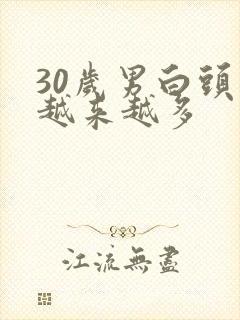 30歲男白頭
越来越多
江流無盡